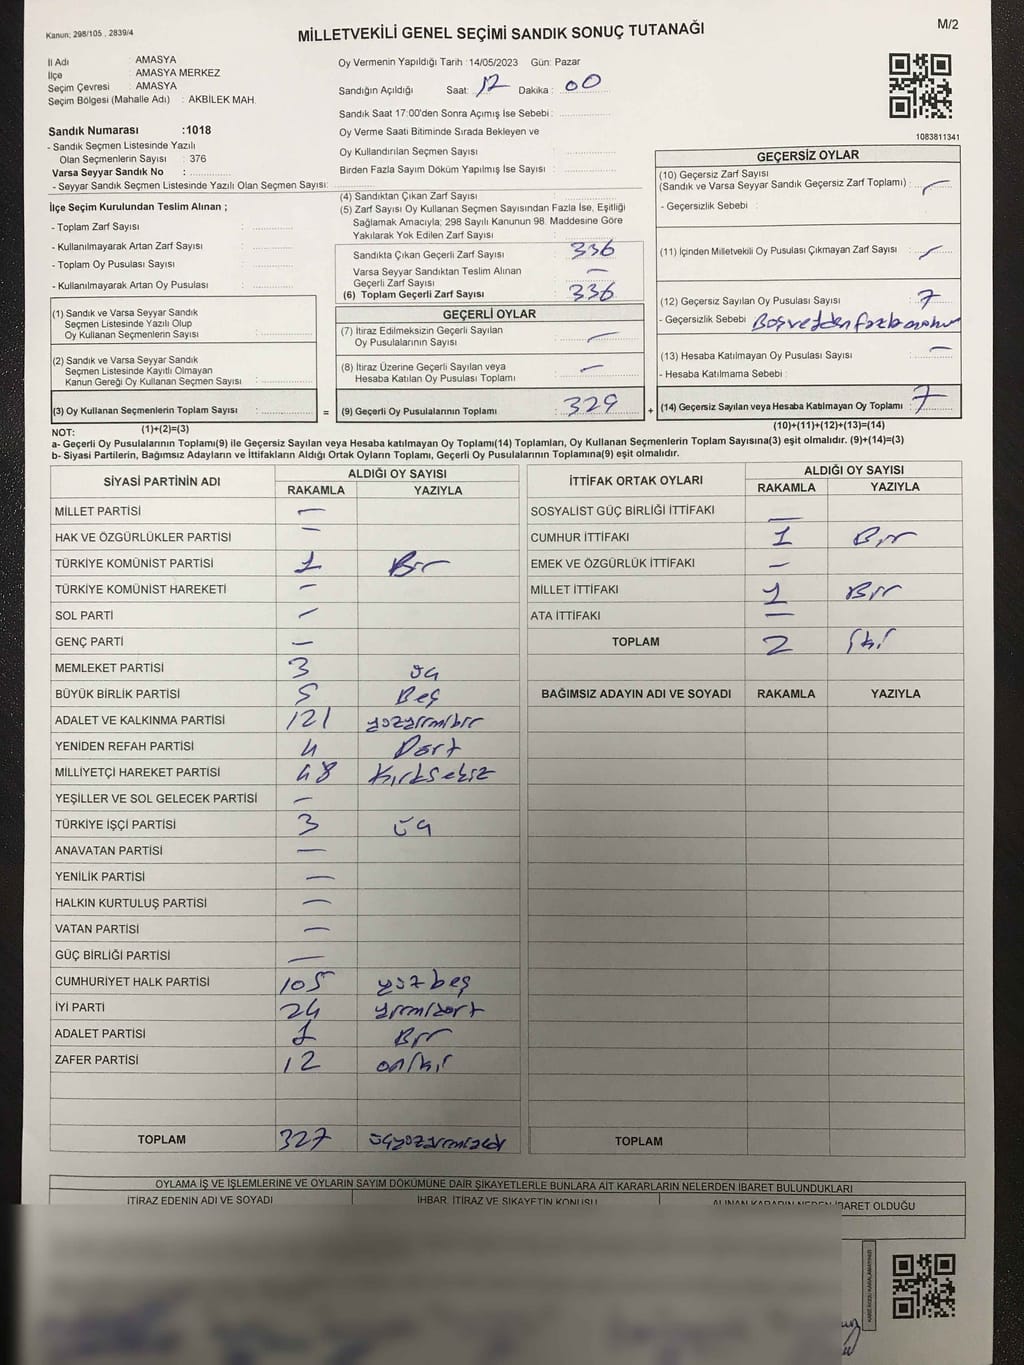 Kanun; 298/105 , 2839/4
MİLLETVEKİLİ GENEL SEÇİMİ SANDIK SONUÇ TUTANAĞI
M/2
İl Adı : AMASYA
İlçe : AMASYA MERKEZ
Seçim Çevresi : AMASYA
Seçim Bölgesi (Mahalle Adı) : AKBİLEK MAH.
Sandık Numarası :1018
- Sandık Seçmen Listesinde Yazılı
Olan Seçmenlerin Sayısı : 376
Varsa Seyyar Sandık No :
- Seyyar Sandık Seçmen Listesinde Yazılı Olan Seçmen Sayısı:
İlçe Seçim Kurulundan Teslim Alınan ;
- Toplam Zarf Sayısı :
- Kullanılmayarak Artan Zarf Sayısı :
- Toplam Oy Pusulası Sayısı :
- Kullanılmayarak Artan Oy Pusulası :
(1) Sandık ve Varsa Seyyar Sandık
Seçmen Listesinde Yazılı Olup
Oy Kullanan Seçmenlerin Sayısı :
(2) Sandık ve Varsa Seyyar Sandık
Seçmen Listesinde Kayıtlı Olmayan
Kanun Gereği Oy Kullanan Seçmen Sayısı :
(3) Oy Kullanan Seçmenlerin Toplam Sayısı :
(1)+(2)=(3)
Oy Vermenin Yapıldığı Tarih :14/05/2023 Gün: Pazar
Sandığın Açıldığı Saat: 17 Dakika : 00
Sandık Saat 17:00'den Sonra Açımış İse Sebebi :
Oy Verme Saati Bitiminde Sırada Bekleyen ve
Oy Kullandırılan Seçmen Sayısı :
Birden Fazla Sayım Döküm Yapılmış İse Sayısı :
(4) Sandıktan Çıkan Zarf Sayısı :
(5) Zarf Sayısı Oy Kullanan Seçmen Sayısından Fazla İse, Eşitliği
Sağlamak Amacıyla; 298 Sayılı Kanunun 98. Maddesine Göre
Yakılarak Yok Edilen Zarf Sayısı :
Sandıkta Çıkan Geçerli Zarf Sayısı : 336
Varsa Seyyar Sandıktan Teslim Alınan
Geçerli Zarf Sayısı : —
(6) Toplam Geçerli Zarf Sayısı : 336
GEÇERLİ OYLAR
(7) İtiraz Edilmeksizin Geçerli Sayılan
Oy Pusulalarının Sayısı : —
(8) İtiraz Üzerine Geçerli Sayılan veya
Hesaba Katılan Oy Pusulası Toplamı : —
= (9) Geçerli Oy Pusulalarının Toplamı : 329 +
1083811341
GEÇERSİZ OYLAR
(10) Geçersiz Zarf Sayısı
(Sandık ve Varsa Seyyar Sandık Geçersiz Zarf Toplamı) : —
- Geçersizlik Sebebi :
(11) İçinden Milletvekili Oy Pusulası Çıkmayan Zarf Sayısı : —
(12) Geçersiz Sayılan Oy Pusulası Sayısı : 7
- Geçersizlik Sebebi : Boş
(13) Hesaba Katılmayan Oy Pusulası Sayısı : —
- Hesaba Katılmama Sebebi :
(14) Geçersiz Sayılan veya Hesaba Katılmayan Oy Toplamı : 7
(10)+(11)+(12)+(13)=(14)
NOT:
a- Geçerli Oy Pusulalarının Toplamı(9) ile Geçersiz Sayılan veya Hesaba katılmayan Oy Toplamı(14) Toplamları, Oy Kullanan Seçmenlerin Toplam Sayısına(3) eşit olmalıdır. (9)+(14)=(3)
b- Siyasi Partilerin, Bağımsız Adayların ve İttifakların Aldığı Ortak Oyların Toplamı, Geçerli Oy Pusulalarının Toplamına(9) eşit olmalıdır.
SİYASİ PARTİNİN ADI ALDIĞI OY SAYISI
RAKAMLA YAZIYLA
MİLLET PARTİSİ —
HAK VE ÖZGÜRLÜKLER PARTİSİ —
TÜRKİYE KOMÜNİST PARTİSİ 1 Bir
TÜRKİYE KOMÜNİST HAREKETİ —
SOL PARTİ —
GENÇ PARTİ —
MEMLEKET PARTİSİ 3 üç
BÜYÜK BİRLİK PARTİSİ 5 Beş
ADALET VE KALKINMA PARTİSİ 121 yüzyirmibir
YENİDEN REFAH PARTİSİ 4 Dört
MİLLİYETÇİ HAREKET PARTİSİ 48 Kırksekiz
YEŞİLLER VE SOL GELECEK PARTİSİ —
TÜRKİYE İŞÇİ PARTİSİ 3 üç
ANAVATAN PARTİSİ —
YENİLİK PARTİSİ —
HALKIN KURTULUŞ PARTİSİ —
VATAN PARTİSİ —
GÜÇ BİRLİĞİ PARTİSİ —
CUMHURİYET HALK PARTİSİ 105 yüzbeş
İYİ PARTİ 24 yirmidört
ADALET PARTİSİ 1 Bir
ZAFER PARTİSİ 12 oniki
TOPLAM 327 üçyüzyirmiyedi
İTTİFAK ORTAK OYLARI ALDIĞI OY SAYISI
RAKAMLA YAZIYLA
SOSYALİST GÜÇ BİRLİĞİ İTTİFAKI —
CUMHUR İTTİFAKI 1 Bir
EMEK VE ÖZGÜRLÜK İTTİFAKI —
MİLLET İTTİFAKI 1 Bir
ATA İTTİFAKI —
TOPLAM 2 iki
BAĞIMSIZ ADAYIN ADI VE SOYADI RAKAMLA YAZIYLA
TOPLAM
OYLAMA İŞ VE İŞLEMLERİNE VE OYLARIN SAYIM DÖKÜMÜNE DAİR ŞİKAYETLERLE BUNLARA AİT KARARLARIN NELERDEN İBARET BULUNDUKLARI
İTİRAZ EDENİN ADI VE SOYADI İHBAR, İTİRAZ VE ŞİKAYETİN KONUSU ALINAN KARARIN NEDEN İBARET OLDUĞU